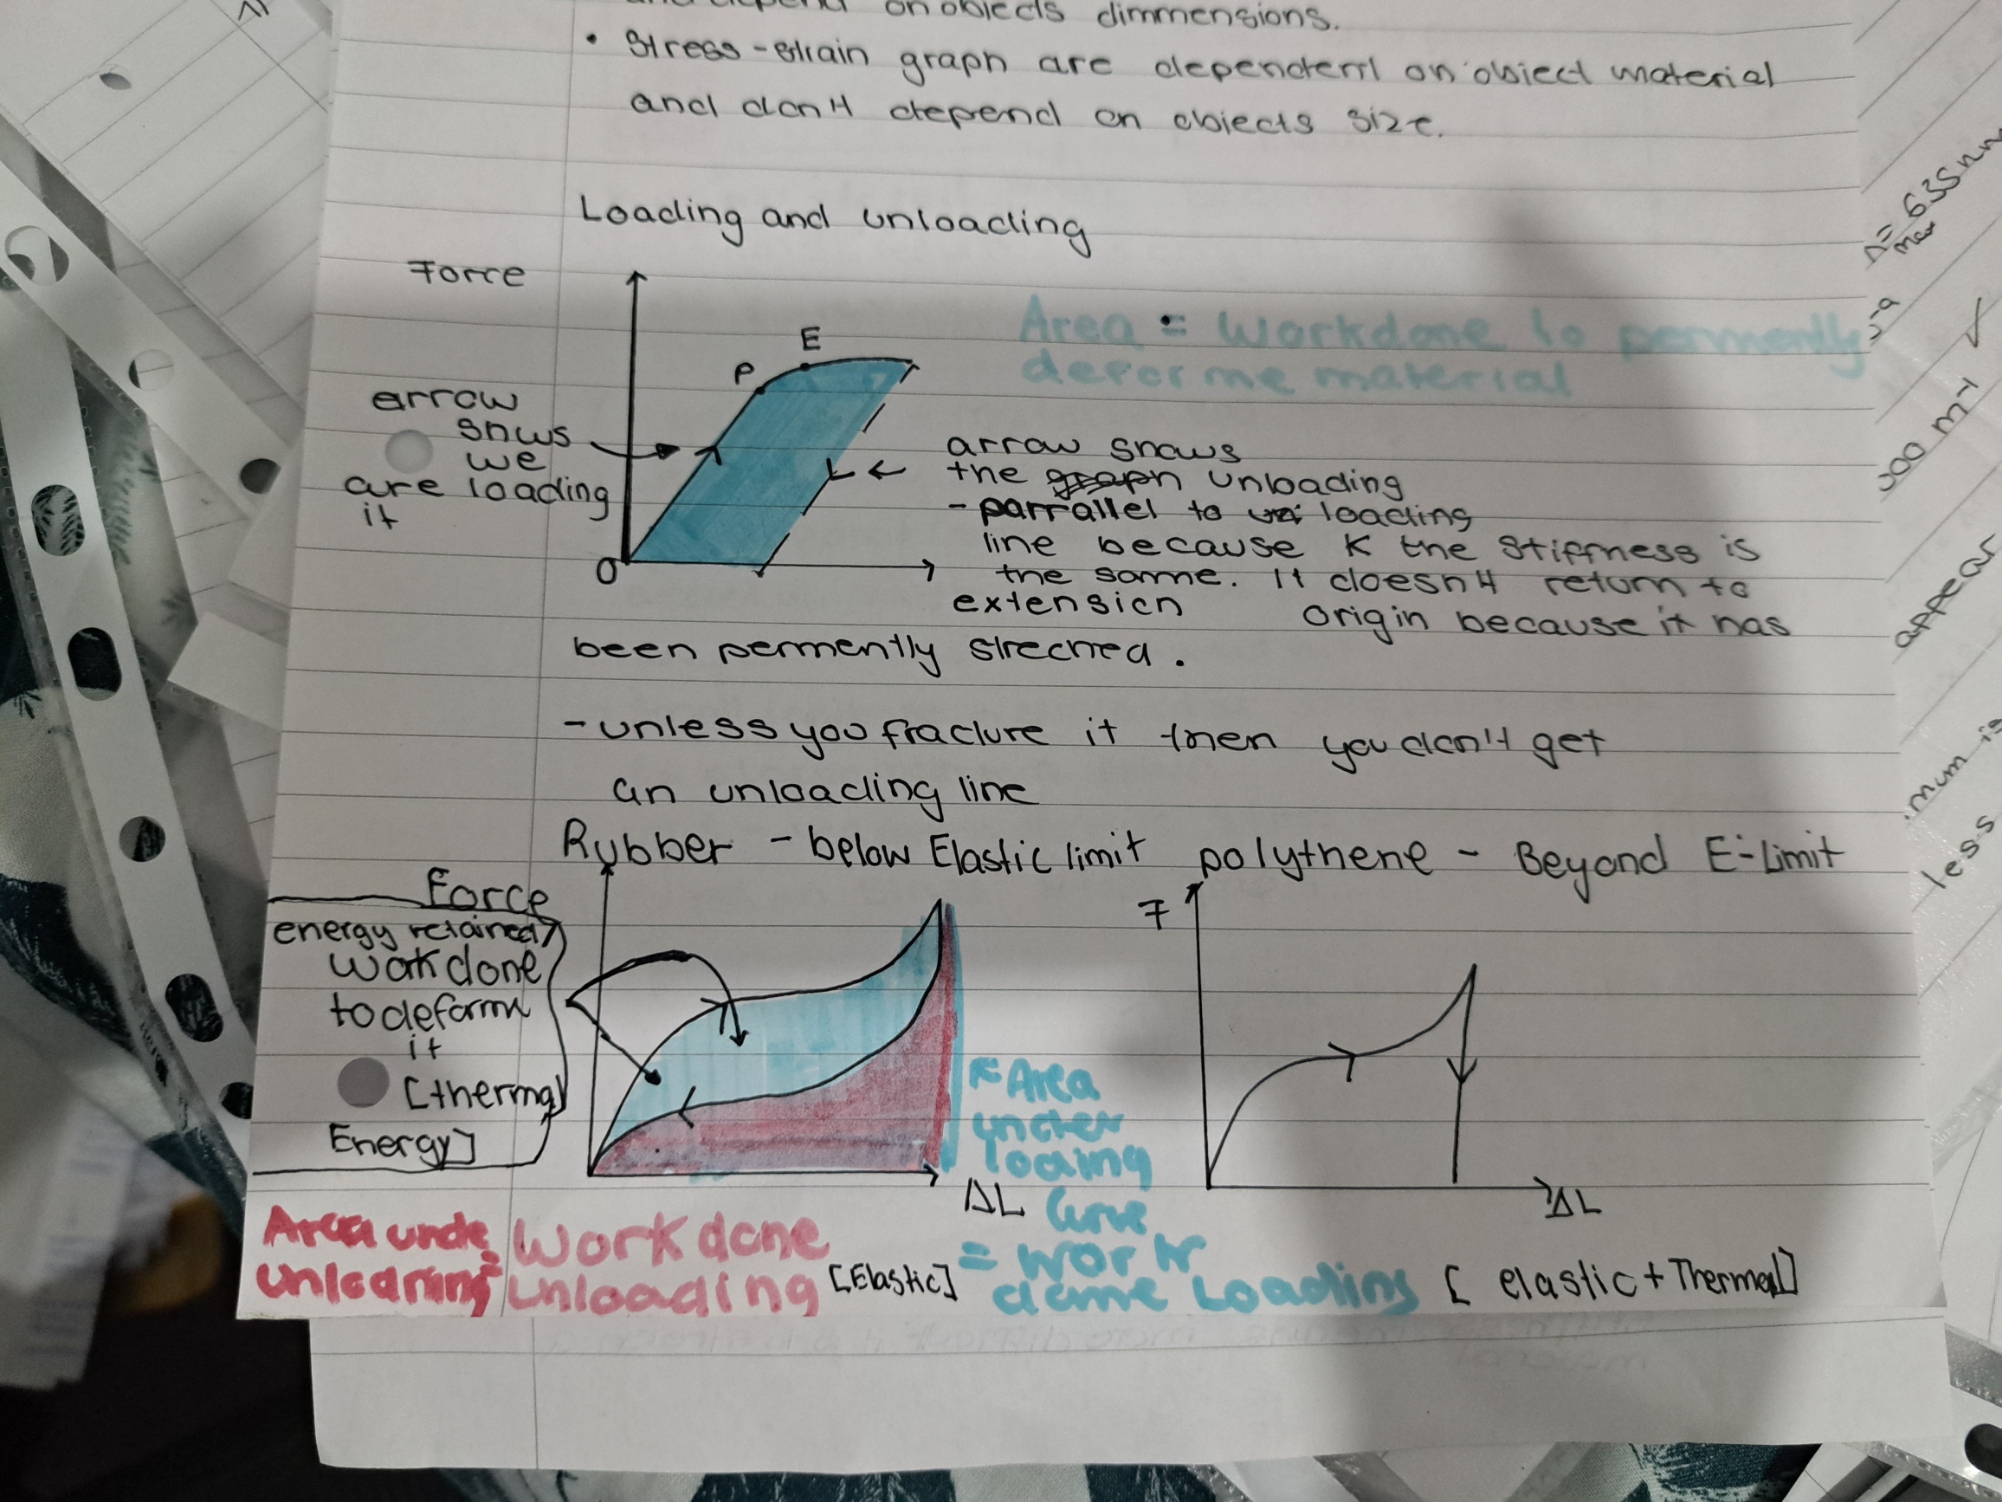 on objects dimmensions.
• Stress-strain graph are dependent on object material
and don't depend on objects size.
Loading and unloading
Force
Area = Workdone to permently
deform the material
arrow
shows
we
are loading
it
O
P
E
arrow shows
the graph unloading
- parrallel to loading
line because K the stiffness is
the same. It doesn't return to
extension
origin because it has
been permently streched.
- unless you fracture it then you don't get
an unloading line
Rubber - below Elastic limit
polythene - Beyond E-Limit
Force
energy retained
work done
to deform
it
[thermal
Energy]
ΔL
F
ΔL
Area under
unloading = Work done
unloading [Elastic]
Area
under
loading
curve
= work
done Loading [elastic + Thermal]
= 635nm
max
500 m
appear
mum is
less